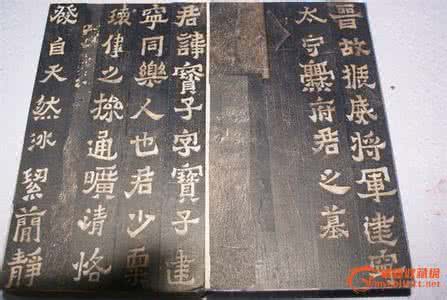 晉故振威將軍建寧
太守爨府君之墓
君諱寶子字寶子建
寧同樂人也君少稟
瓌偉之操通曠清恪
發自天然冰絜簡靜
收藏網